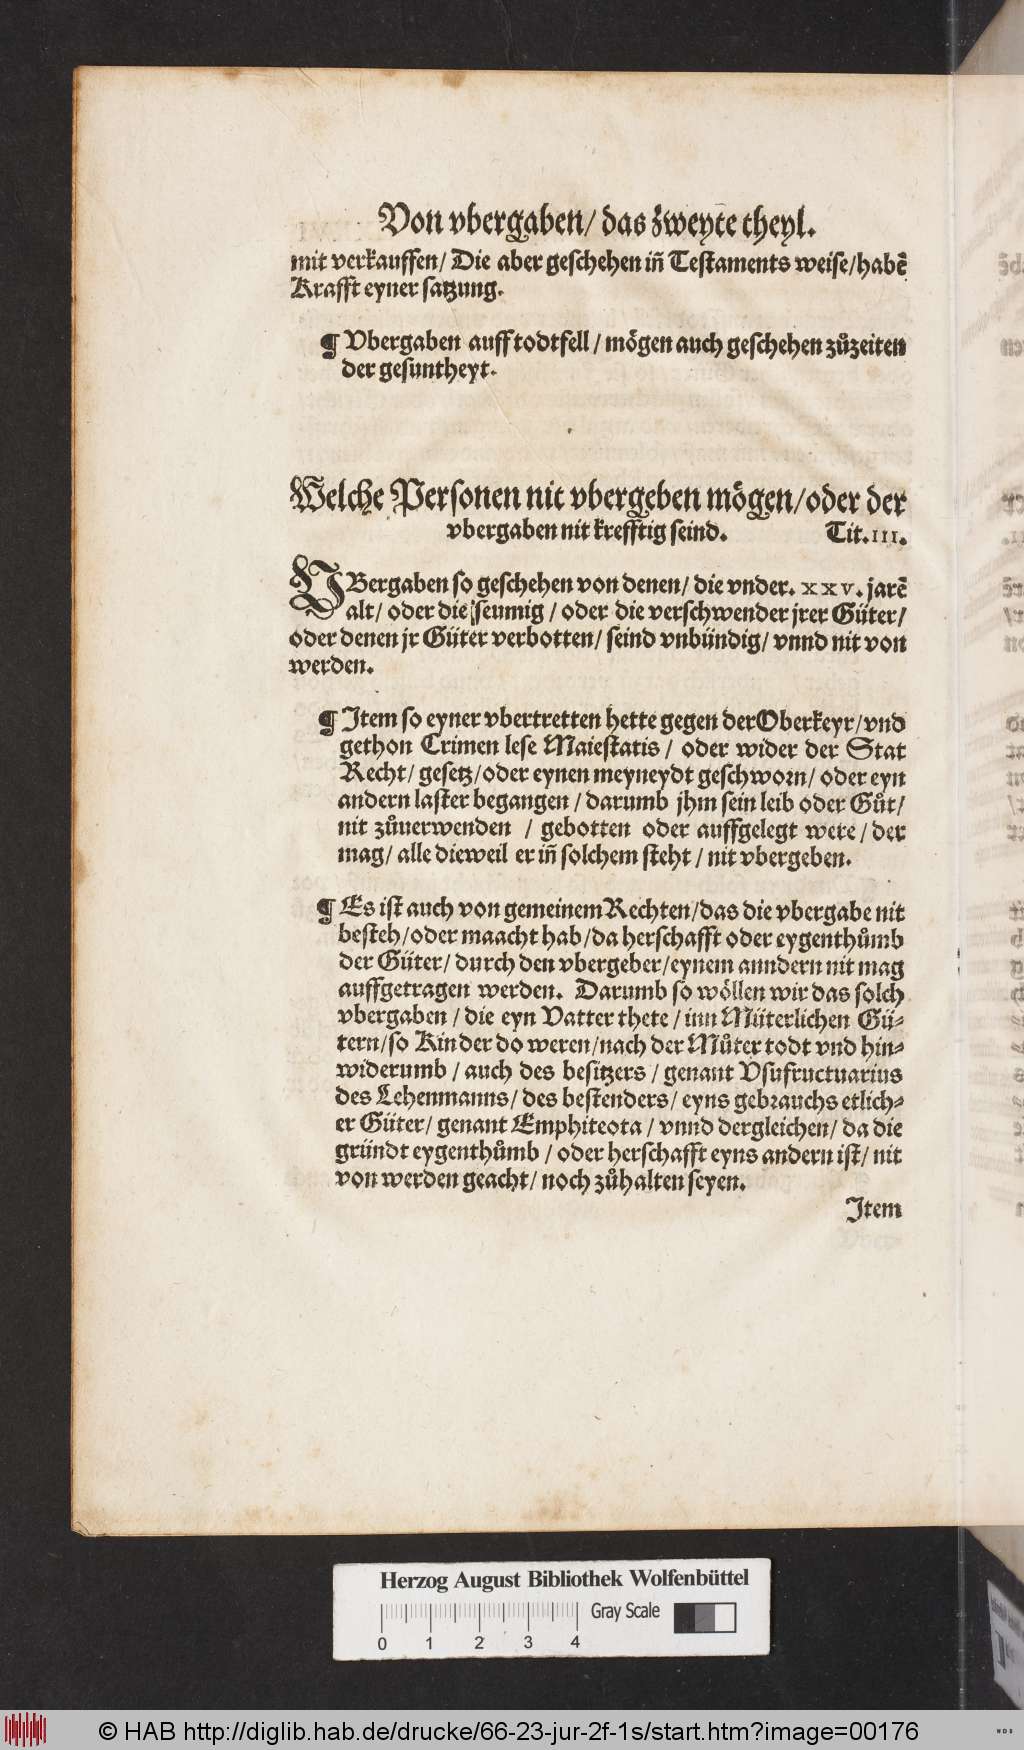 Von vbergaben/ das zweyte theyl.
mit verkauffen/ Die aber geschehen iñ Testaments weise/habẽ
Krafft eyner satzung.
¶ Vbergaben auff todtfell / mögen auch geschehen zůzeiten
der gesuntheyt.
Welche Personen nit vbergeben mögen/oder der
vbergaben nit krefftig seind. Tit.III.
VBergaben so geschehen von denen/ die vnder. XXV. jarẽ
alt/ oder die seumig / oder die verschwender jrer Güter/
oder denen jr Güter verbotten/ seind vnbündig/ vnnd nit von
werden.
¶ Item so eyner vbertretten hette gegen der Oberkeyr/vnd
gethon Crimen lese Maiestatis / oder wider der Stat
Recht/ gesetz/oder eynen meyneydt geschworn/ oder eyn
andern laster begangen / darumb jhm sein leib oder Gůt/
nit zůuerwenden / gebotten oder auffgelegt were/ der
mag/ alle dieweil er iñ solchem steht / nit vbergeben.
¶ Es ist auch von gemeinem Rechten/das die vbergabe nit
besteh/oder maacht hab/da herschafft oder eygenthůmb
der Güter/ durch den vbergeber/eynem anndern nit mag
auffgetragen werden. Darumb so wöllen wir das solch
vbergaben / die eyn Vatter thete / inn Müterlichen Gü⸗
tern/so Kinder do weren/nach der Můter todt vnd hin⸗
widerumb / auch des besitzers / genant Vsufructuarius
des Lehenmanns/ des bestenders/ eyns gebrauchs etlich⸗
er Güter/ genant Emphiteota / vnnd dergleichen/ da die
gründt eygenthůmb / oder herschafft eyns andern ist/ nit
von werden geacht/ noch zůhalten seyen.
Item
Herzog August Bibliothek Wolfenbüttel
Gray Scale
0 1 2 3 4
© HAB http://diglib.hab.de/drucke/66-23-jur-2f-1s/start.htm?image=00176